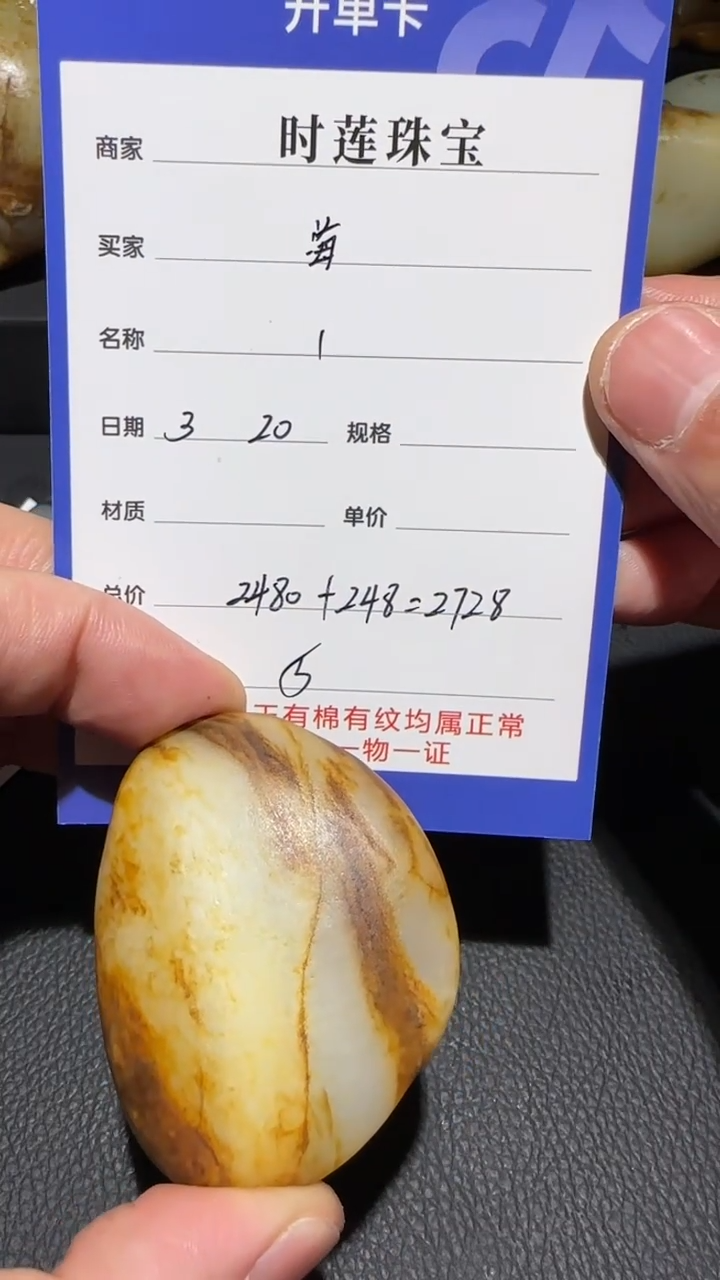 开单卡
商家 时莲珠宝
买家 莓
名称 1
日期 3 20 规格
材质 单价
总价 2480+248=2728
⑤
玉有棉有纹均属正常
一物一证